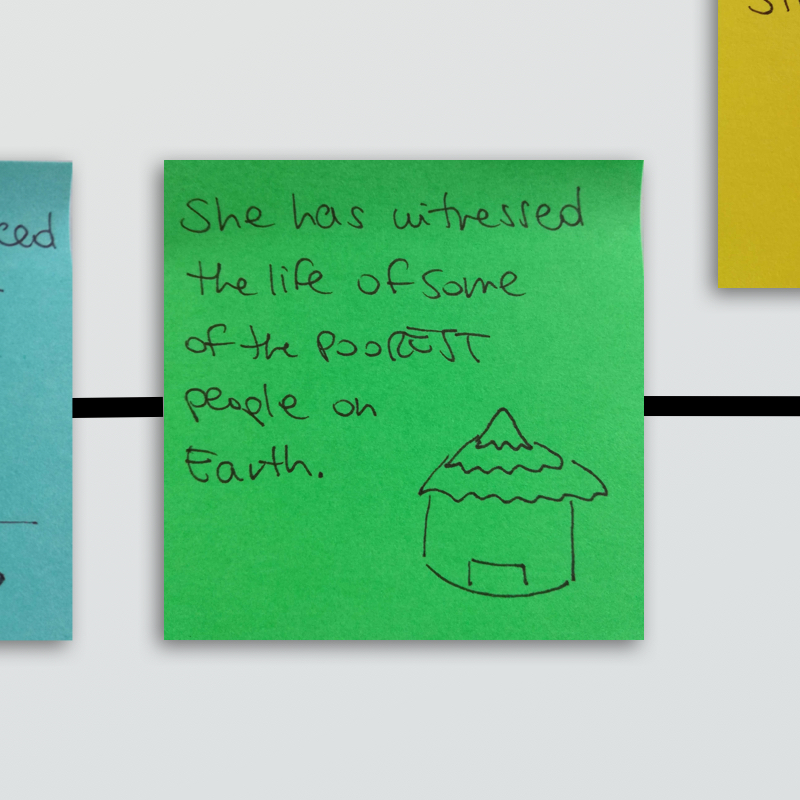 She has witnessed
the life of some
of the POOREST
people on
Earth.
ced